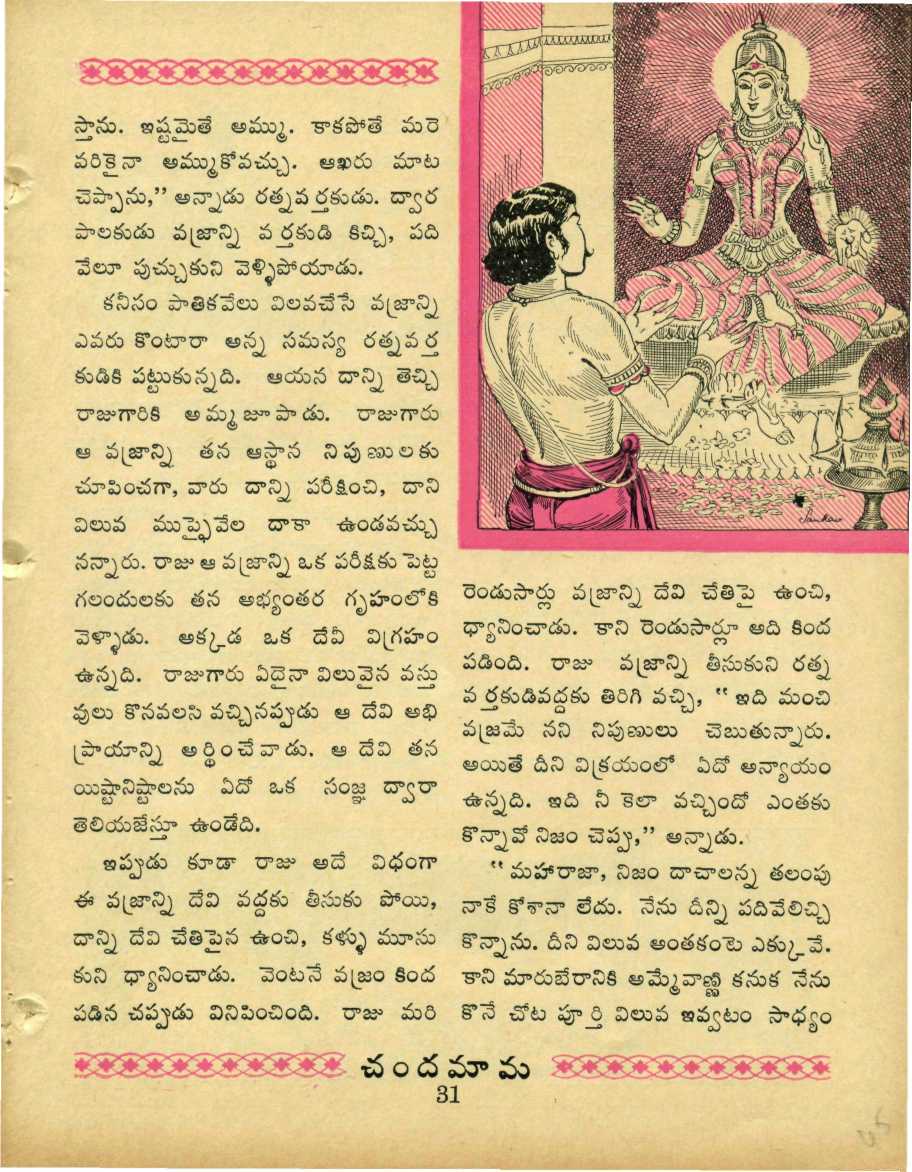 స్తాను. ఇష్టమైతే అమ్ము. కాకపోతే మరె
వరికైనా అమ్ముకోవచ్చు. ఆఖరు మాట
చెప్పాను,” అన్నాడు రత్నవర్తకుడు. ద్వార
పాలకుడు వజ్రాన్ని వర్తకుడి కిచ్చి, పది
వేలూ పుచ్చుకుని వెళ్ళిపోయాడు.
కనీసం పాతికవేలు విలవచేసే వజ్రాన్ని
ఎవరు కొంటారా అన్న సమస్య రత్నవర్త
కుడికి పట్టుకున్నది. ఆయన దాన్ని తెచ్చి
రాజుగారికి అమ్మజూపాడు. రాజుగారు
ఆ వజ్రాన్ని తన ఆస్థాన నిపుణులకు
చూపించగా, వారు దాన్ని పరీక్షించి, దాని
విలువ ముప్ఫైవేల దాకా ఉండవచ్చు
నన్నారు. రాజు ఆ వజ్రాన్ని ఒక పరీక్షకు పెట్ట
గలందులకు తన అభ్యంతర గృహంలోకి
వెళ్ళాడు. అక్కడ ఒక దేవీ విగ్రహం
ఉన్నది. రాజుగారు ఏదైనా విలువైన వస్తు
వులు కొనవలసి వచ్చినప్పుడు ఆ దేవి అభి
ప్రాయాన్ని అర్థించేవాడు. ఆ దేవి తన
యిష్టానిష్టాలను ఏదో ఒక సంజ్ఞ ద్వారా
తెలియజేస్తూ ఉండేది.
ఇప్పుడు కూడా రాజు అదే విధంగా
ఈ వజ్రాన్ని దేవి వద్దకు తీసుకు పోయి,
దాన్ని దేవి చేతిపైన ఉంచి, కళ్ళు మూసు
కుని ధ్యానించాడు. వెంటనే వజ్రం కింద
పడిన చప్పుడు వినిపించింది. రాజు మరి
Sankar
రెండుసార్లు వజ్రాన్ని దేవి చేతిపై ఉంచి,
ధ్యానించాడు. కాని రెండుసార్లూ అది కింద
పడింది. రాజు వజ్రాన్ని తీసుకుని రత్న
వర్తకుడివద్దకు తిరిగి వచ్చి, “ఇది మంచి
వజ్రమే నని నిపుణులు చెబుతున్నారు.
అయితే దీని విక్రయంలో ఏదో అన్యాయం
ఉన్నది. ఇది నీ కెలా వచ్చిందో ఎంతకు
కొన్నావో నిజం చెప్పు,” అన్నాడు.
“మహారాజా, నిజం దాచాలన్న తలంపు
నాకే కోశానా లేదు. నేను దీన్ని పదివేలిచ్చి
కొన్నాను. దీని విలువ అంతకంటె ఎక్కువే.
కాని మారుబేరానికి అమ్మేవాణ్ణి కనుక నేను
కొనే చోట పూర్తి విలువ ఇవ్వటం సాధ్యం
చందమామ
31